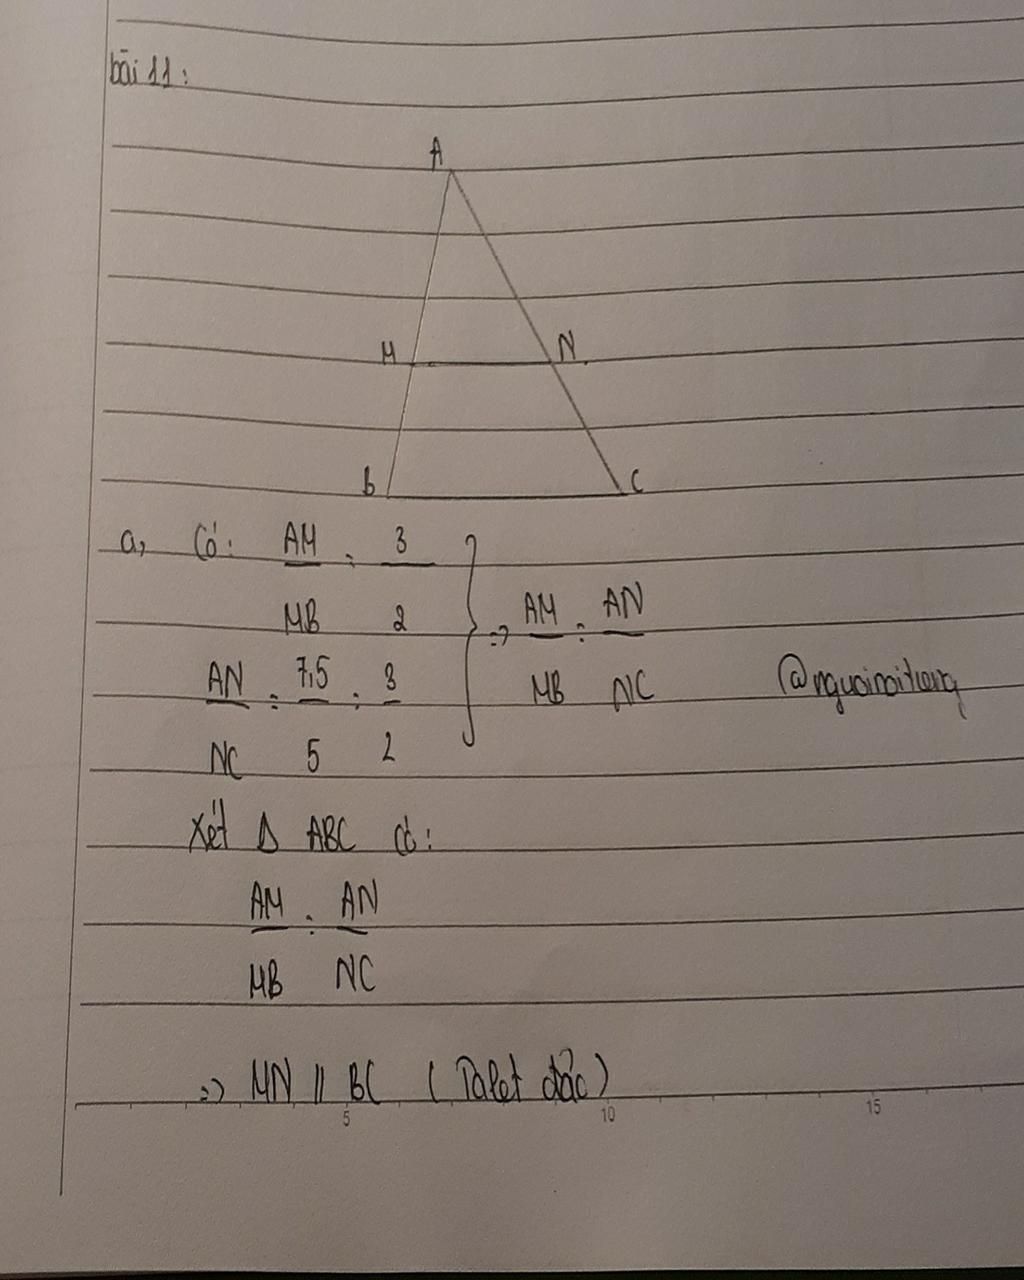 bài 11:
A
M N
B C
a, Có: AM/MB = 3/2
AN/NC = 7,5/5 = 3/2
=> AM/MB = AN/NC
@nguoinoitieng
Xét Δ ABC có:
AM/MB = AN/NC
=> MN // BC (Talet đảo)
5 10 15